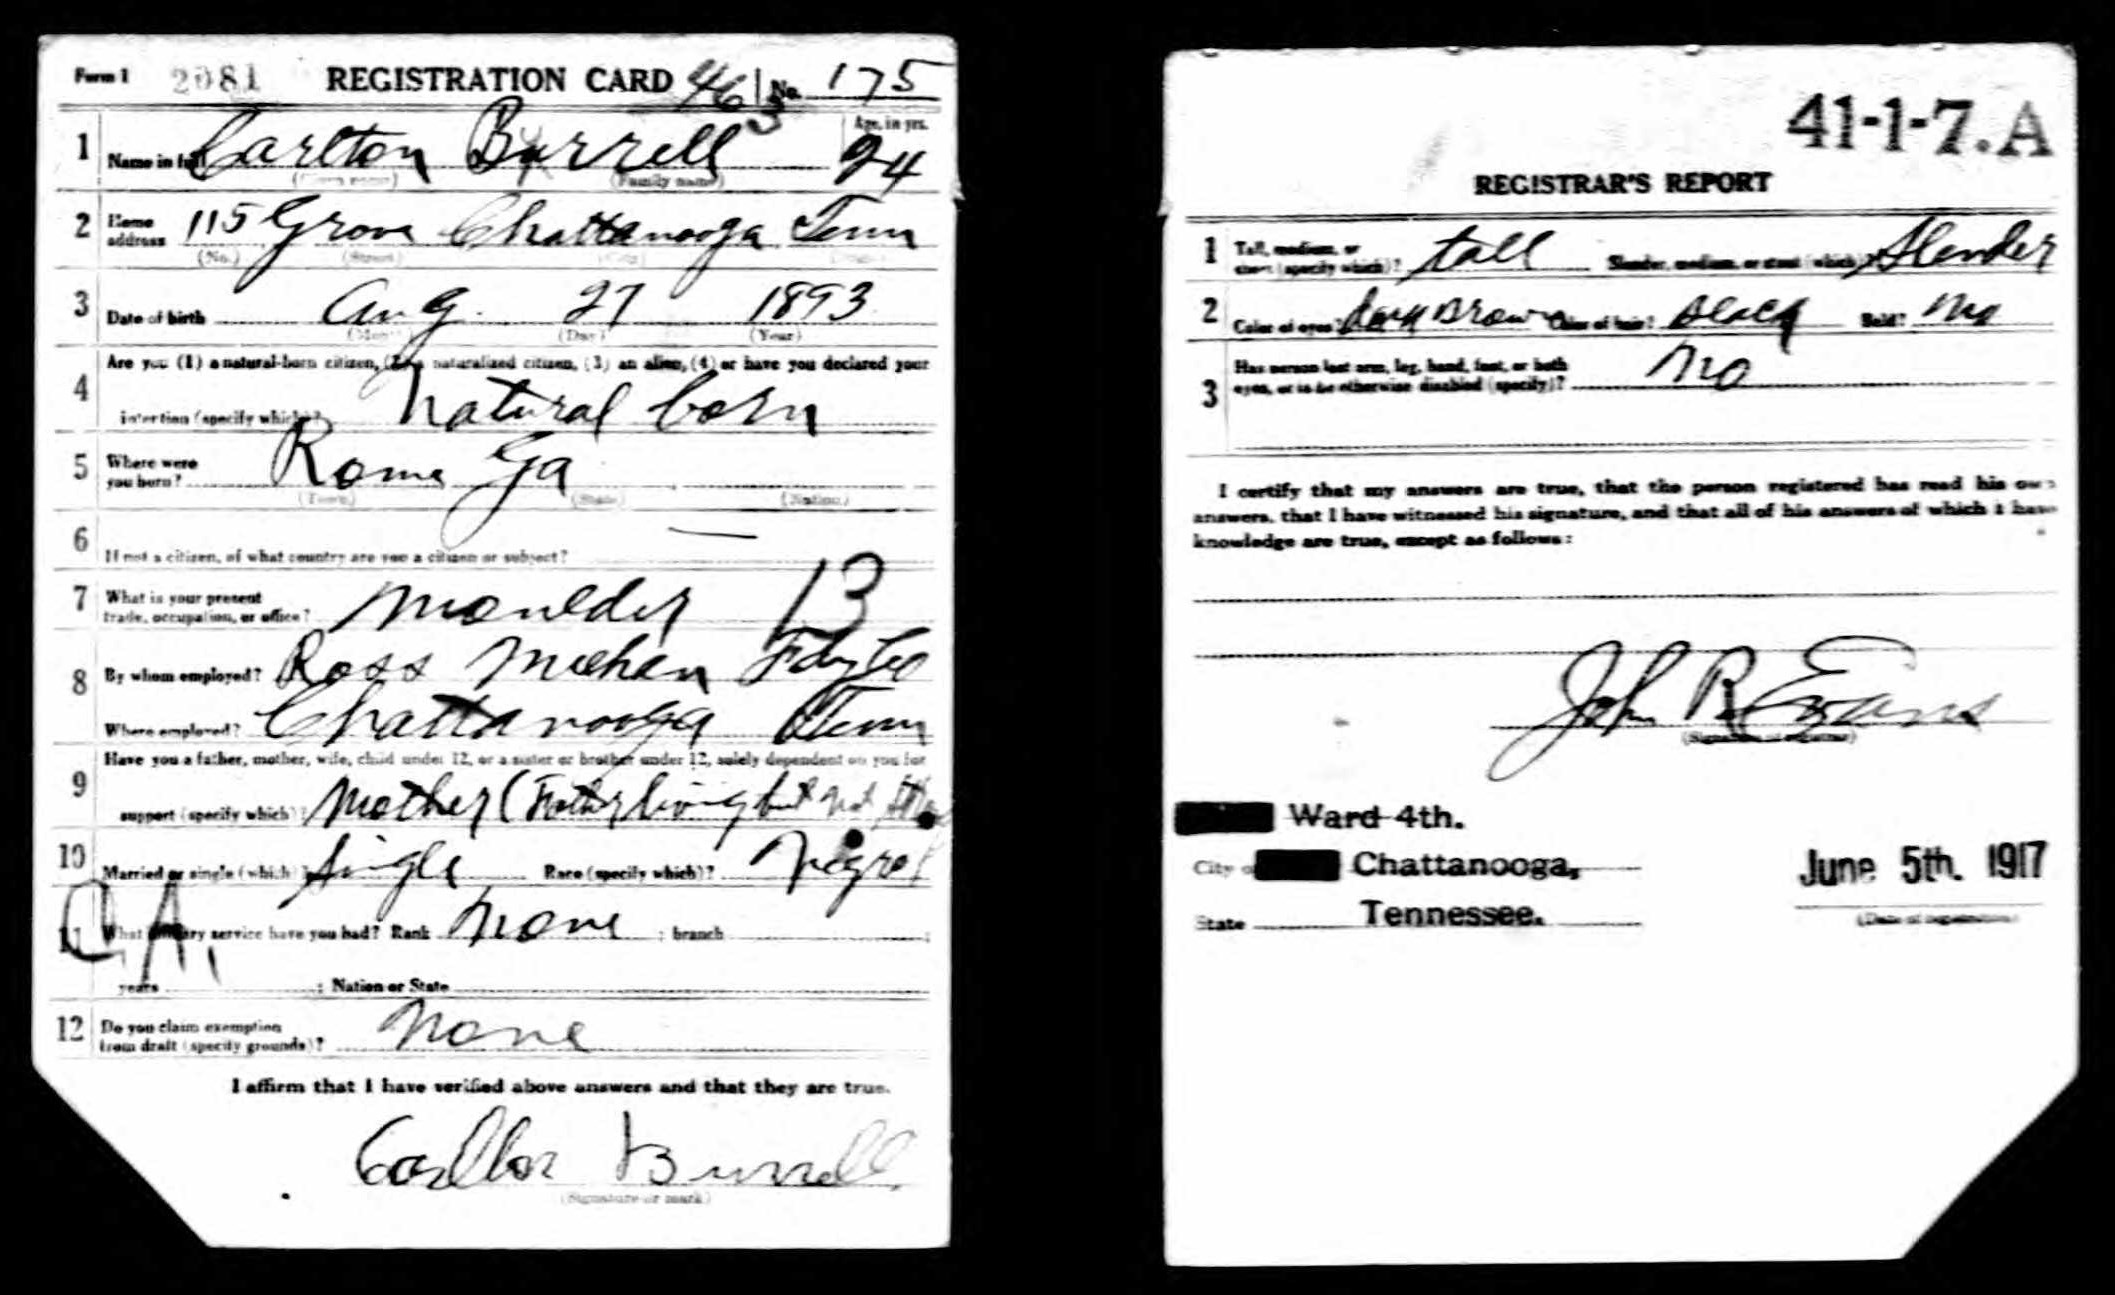 Form 1 2081 REGISTRATION CARD 46 No. 175
1 Name in full Carlton Burrell Age, in yrs. 24
(Given name) (Family name)
2 Home address 115 Grove Chattanooga Tenn
(No.) (Street) (City) (State)
3 Date of birth Aug. 27 1893
(Month) (Day) (Year)
4 Are you (1) a natural-born citizen, (2) a naturalized citizen, (3) an alien, (4) or have you declared your
intention (specify which)? Natural born
5 Where were you born? Rome Ga
(Town) (State) (Nation)
6 If not a citizen, of what country are you a citizen or subject? —
7 What is your present trade, occupation, or office? Moulder 13
8 By whom employed? Ross Meehan Fdry Co
Where employed? Chattanooga Tenn
9 Have you a father, mother, wife, child under 12, or a sister or brother under 12, solely dependent on you for
support (specify which)? Mother (Father living but not
10 Married or single (which)? Single Race (specify which)? Negro
11 What military service have you had? Rank None ; branch ;
years ; Nation or State
12 Do you claim exemption from draft (specify grounds)? None
I affirm that I have verified above answers and that they are true.
Carlton Burrell
(Signature or mark)
41-1-7. A
REGISTRAR'S REPORT
1 Tall, medium, or short (specify which)? tall Slender, medium, or stout (which)? Slender
2 Color of eyes? dark Brown Color of hair? Black Bald? No
3 Has person lost arm, leg, hand, foot, or both eyes, or is he otherwise disabled (specify)? No
I certify that my answers are true, that the person registered has read his own
answers, that I have witnessed his signature, and that all of his answers of which I have
knowledge are true, except as follows:
John R Evans
(Signature of registrar)
Ward 4th.
City of Chattanooga,
State Tennessee.
June 5th. 1917
(Date of registration)